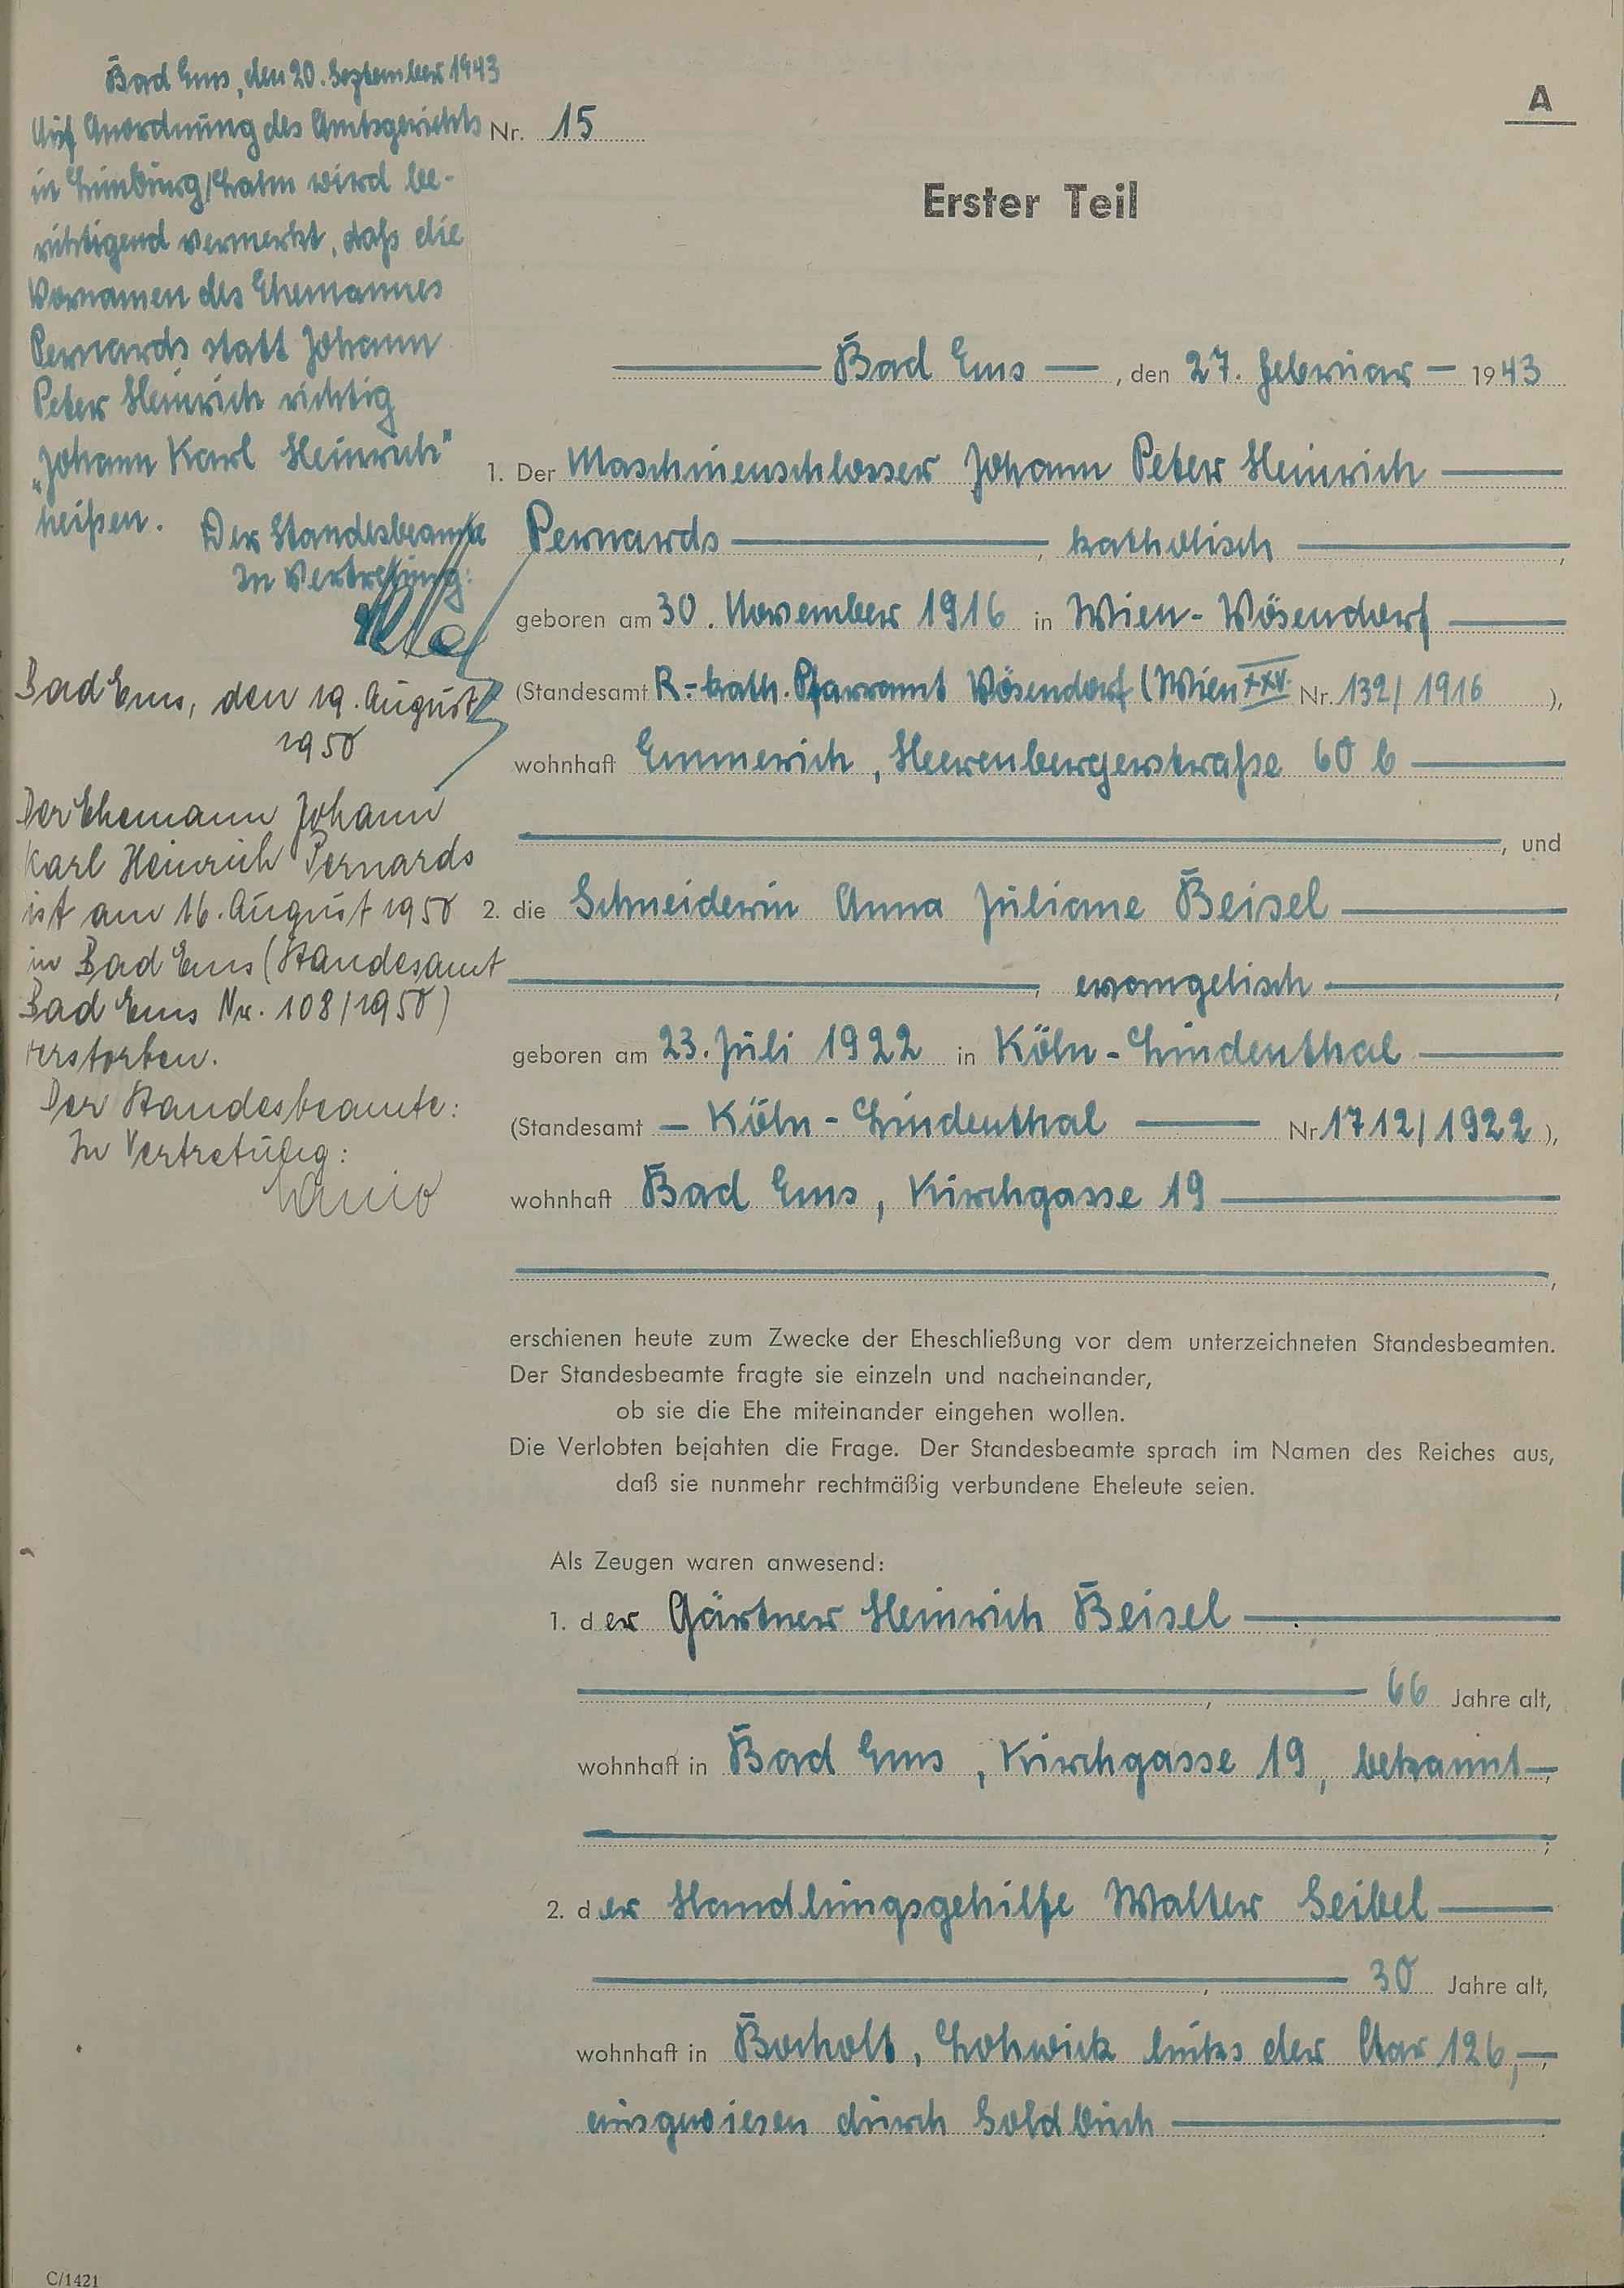 A
Nr. 15
Erster Teil
Bad Ems, den 27. Februar 1943
1. Der Maschinenschlosser Johann Peter Heinrich
Pernards, katholisch,
geboren am 30. November 1916 in Wien-Vösendorf
(Standesamt R.-kath. Pfarramt Vösendorf (Wien XXV. Nr. 132/1916),
wohnhaft Emmerich, Heerenbergerstraße 60 b
, und
2. die Schneiderin Anna Juliane Beisel
, evangelisch,
geboren am 23. Juli 1922 in Köln-Lindenthal
(Standesamt Köln-Lindenthal Nr. 1712/1922),
wohnhaft Bad Ems, Kirchgasse 19
,
erschienen heute zum Zwecke der Eheschließung vor dem unterzeichneten Standesbeamten.
Der Standesbeamte fragte sie einzeln und nacheinander,
ob sie die Ehe miteinander eingehen wollen.
Die Verlobten bejahten die Frage. Der Standesbeamte sprach im Namen des Reiches aus,
daß sie nunmehr rechtmäßig verbundene Eheleute seien.
Als Zeugen waren anwesend:
1. der Gärtner Heinrich Beisel
, 66 Jahre alt,
wohnhaft in Bad Ems, Kirchgasse 19, bekannt,
;
2. der Handlungsgehilfe Walter Seibel
, 30 Jahre alt,
wohnhaft in Bocholt, Lohwick links der Aar 126,
ausgewiesen durch Soldbuch
Bad Ems, den 20. September 1943
Auf Anordnung des Amtsgerichts
in Limburg/Lahn wird be-
richtigend vermerkt, daß die
Vornamen des Ehemannes
Pernards statt Johann
Peter Heinrich richtig
„Johann Karl Heinrich"
heißen. Der Standesbeamte
In Vertretung:
Bad Ems, den 19. August
1950
Der Ehemann Johann
Karl Heinrich Pernards
ist am 16. August 1950
in Bad Ems (Standesamt
Bad Ems Nr. 108/1950)
verstorben.
Der Standesbeamte:
In Vertretung:
C/1421